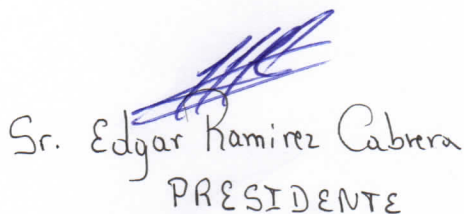 Sr. Edgar Ramirez Cabrera
PRESIDENTE